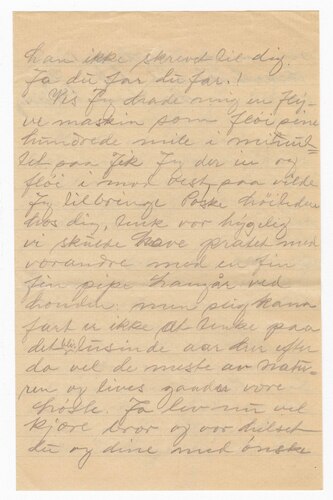 han ikke skrevet til dig.
Ja du far du far.!
Vis Jy havde mig en Flÿ-
ve maskin som fløi fire
hundrede mile i minut-
tet paa Jek Jy der in og
fløi i mod vest paa vilde
Jy tilbringe Paske høitiden
hos dig, tenk vor hygelig
vi skulde have pratet med
vorandre med en fin
fin pipe ved
honden. men slig
fart er ikke at tenke paa
det bli tusinde aar her efter
da vil de meste av natu-
ren og lives gaader vere
løste. Ja lev nu vel
kjære bror og vær hilset
du og dine med ønske